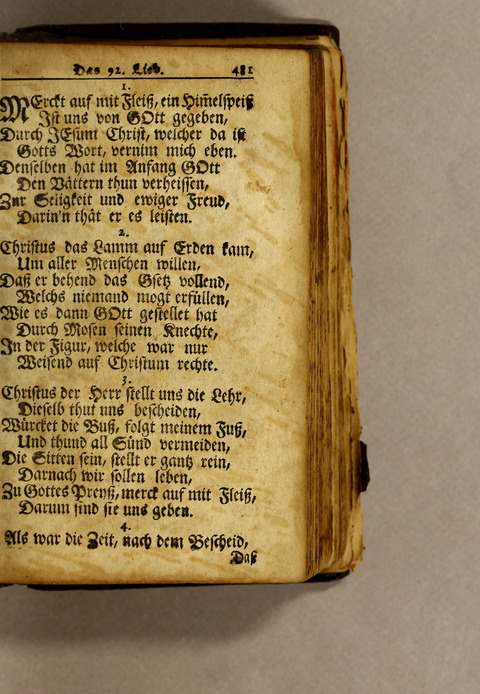 Das 92. Lied. 481
1.
MErckt auf mit Fleiß, ein Him̃elspeiß
Ist uns von GOtt gegeben,
Durch JEsum Christ, welcher da ist
Gotts Wort, vernim mich eben.
Denselben hat im Anfang GOtt
Den Vättern thun verheissen,
Zur Seligkeit und ewiger Freud,
Darin'n thät er es leisten.
2.
Christus das Lamm auf Erden kam,
Um aller Menschen willen,
Daß er behend das Gsetz vollend,
Welchs niemand mogt erfüllen,
Wie es dann GOtt gestellet hat
Durch Mosen seinen Knechte,
In der Figur, welche war nur
Weisend auf Christum rechte.
3.
Christus der Herr stellt uns die Lehr,
Dieselb thut uns bescheiden,
Würcket die Buß, folgt meinem Fuß,
Und thund all Sünd vermeiden,
Die Sitten sein, stellt er gantz rein,
Darnach wir sollen leben,
Zu Gottes Preyß, merck auf mit Fleiß,
Darum sind sie uns geben.
4.
Als war die Zeit, nach dem Bescheid,
Daß